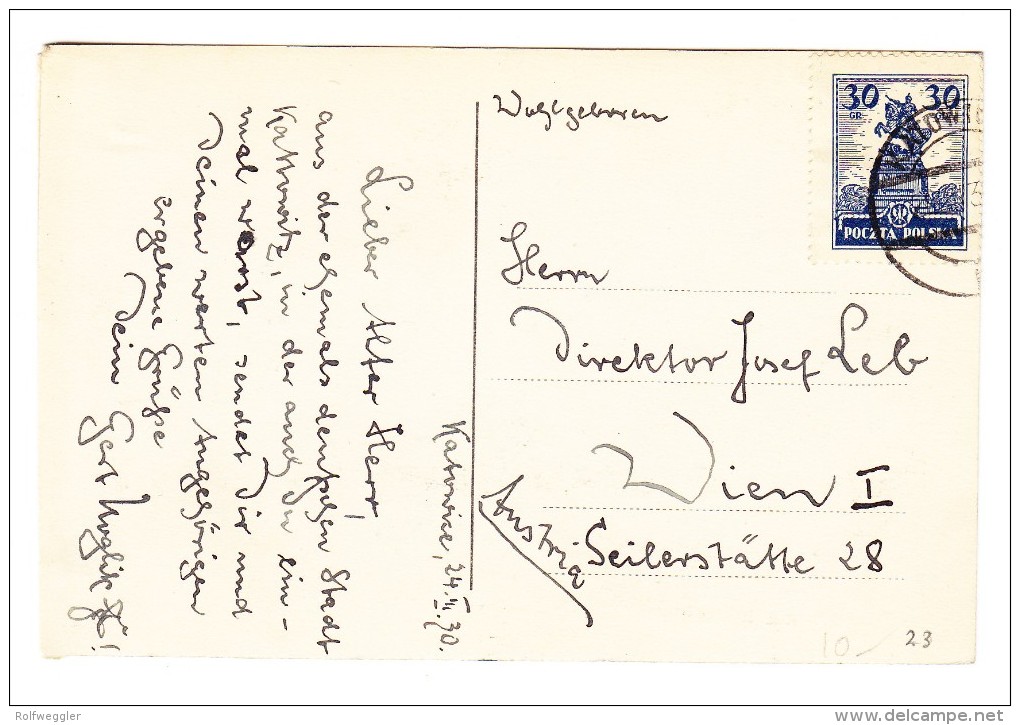 Katowice, 24. II. 30.
Lieber Alter Herr,
aus der ehemals deutschen Stadt
Kattowitz, in der auch Du ein-
mal warst, sendet Dir und
Deinen werten Angehörigen
ergebene Grüße
Dein Gert
Wohlgeboren
Herrn
Direktor Josef Leb
Wien I
Austria
Seilerstätte 28
30 30
GR. GR.
POCZTA POLSKA
KATOWIC
10.-
23
Rolfweggler
www.delcampe.net